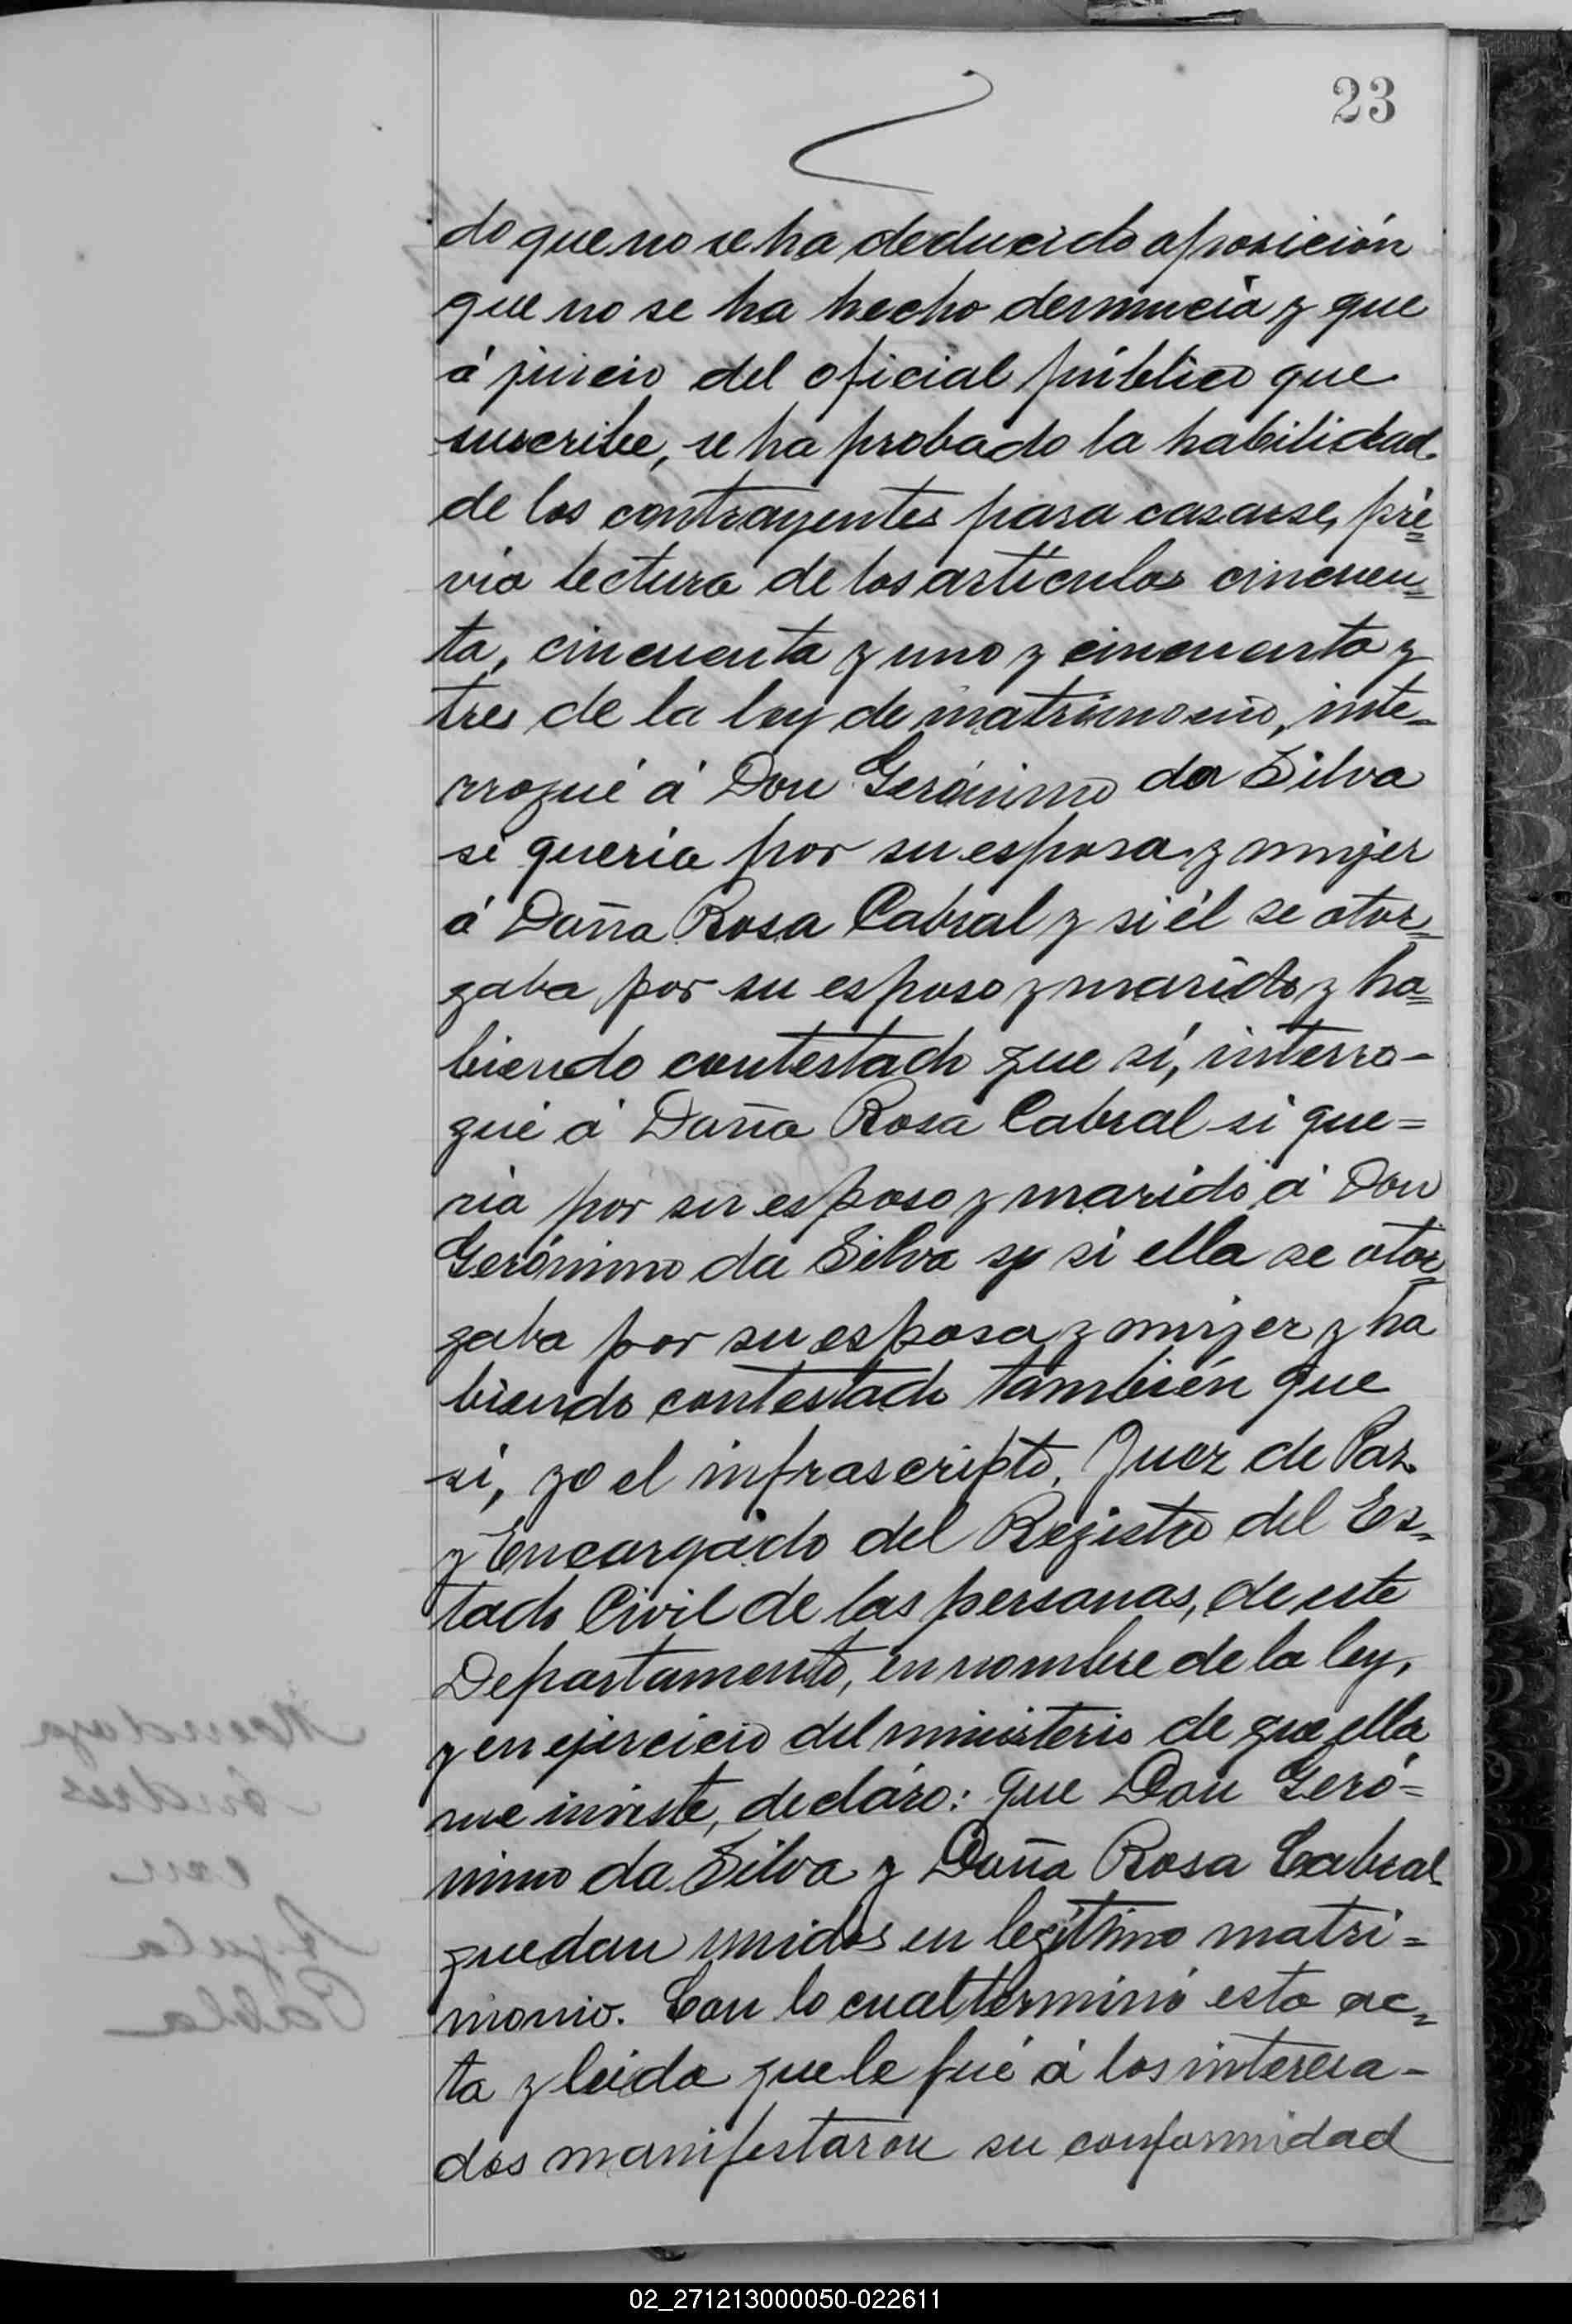 23
do que no se ha deducido oposición
que no se ha hecho denuncia y que
á juicio del oficial público que
suscribe, se ha probado la habilidad
de los contrayentes para casarse, pré=
via lectura de los artículos cincuen=
ta, cincuenta y uno y cincuenta y
tres de la ley de matrimonio, inte-
rrogué á Don Gerónimo da Silva
si quería por su esposa y mujer
á Doña Rosa Cabral y si él se otor=
gaba por su esposo y marido y ha=
biendo contestado que sí, interro-
gué á Doña Rosa Cabral si que=
ria por su esposo y marido á Don
Gerónimo da Silva y si ella se otor=
gaba por su esposa y mujer y ha
biendo contestado también que
sí, yo el infrascripto, Juez de Paz
y Encargado del Registro del Es=
tado Civil de las personas, de este
Departamento, en nombre de la ley,
y en ejercicio del ministerio de que ella
me inviste, decláro: que Don Geró=
nimo da Silva y Doña Rosa Cabral
quedan unidos en legítimo matri=
monio. Con lo cual terminó esta ac=
ta y leida que le fué á los interesa-
dos manifestaron su conformidad
02_271213000050-022611